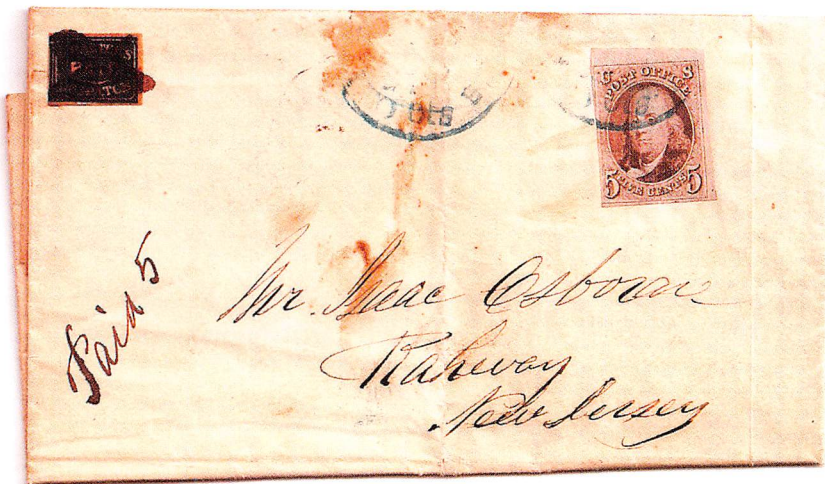 U S
POST OFFICE
FIVE CENTS
5 5
Paid 5
Mr. Isaac Osborne
Rahway
New Jersey